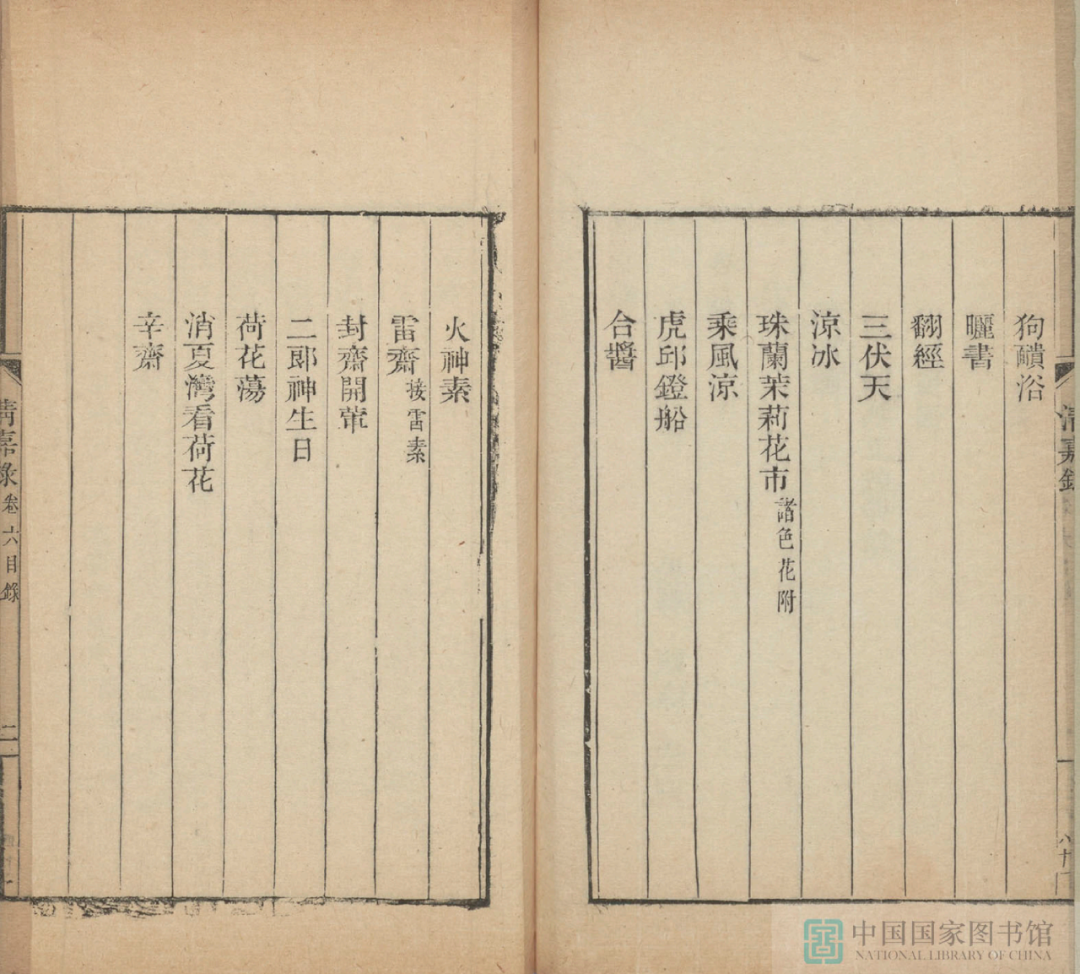 狗䃶浴
曬書
翻經
三伏天
涼冰
珠蘭茉莉花市諸色花附
乘風涼
虎邱鐙船
合醬
火神素
雷齋接雷素
封齋開葷
二郎神生日
荷花蕩
消夏灣看荷花
辛齋
清嘉錄卷六目錄
二
中国国家图书馆
NATIONAL LIBRARY OF CHINA